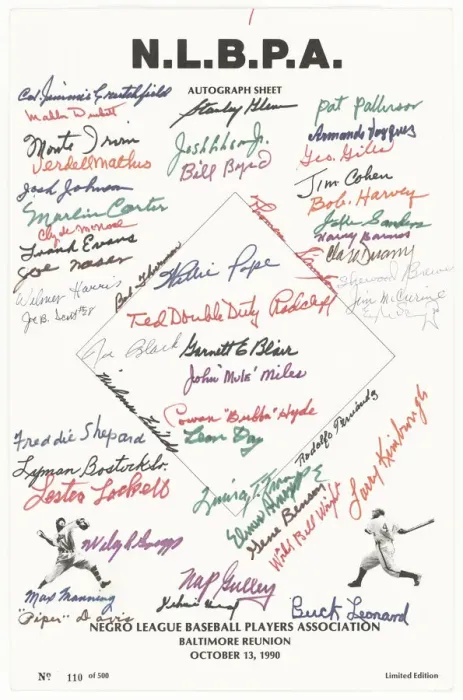 N.L.B.P.A.
AUTOGRAPH SHEET
Col. Jimmie Crutchfield
Stanley Glenn
Pat Patterson
Mahlon Duckett
Armando Vazquez
Monte Irvin
Josh Gibson Jr.
Geo. Giles
Verdell Mathis
Bill Boyd
Jim Cohen
Josh Johnson
Bob Harvey
Marlin Carter
Jake Sanders
Clyde McNeal
Harvey Barnes
Frank Evans
Bob Thurman
Willie Pope
Sherwood Brewer
Wilmer Harris
Jim McCurine
Joe B. Scott #58
Ted Double Duty Radcliff
Joe Black
Garnett E Blair
John "Mule" Miles
Cowan "Bubba" Hyde
Leon Day
Rodolfo Fernandez
Larry Kimbrough
Freddie Shepard
Lyman Bostock Sr.
Lester Lockett
Gene Benson
Wild Bill Wright
Wiley Griggs
Nap Gulley
Max Manning
Buck Leonard
"Piper" Davis
NEGRO LEAGUE BASEBALL PLAYERS ASSOCIATION
BALTIMORE REUNION
OCTOBER 13, 1990
Nº 110 of 500
Limited Edition